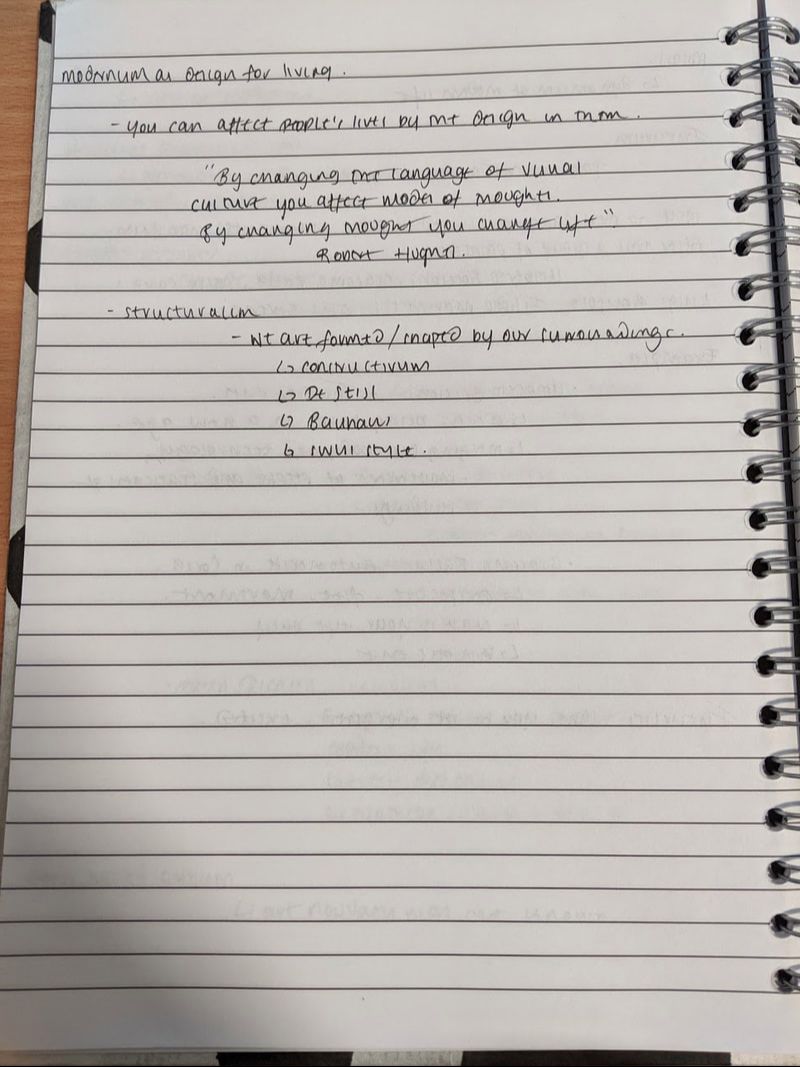 modernism as design for living.
- you can affect people's lives by the design in them.
"By changing the language of visual
culture you affect modes of thought.
By changing thought you change life"
Robert Hughes.
- structuralism
- we are formed/shaped by our surroundings.
↳ constructivism
↳ De Stijl
↳ Bauhaus
↳ swiss style.